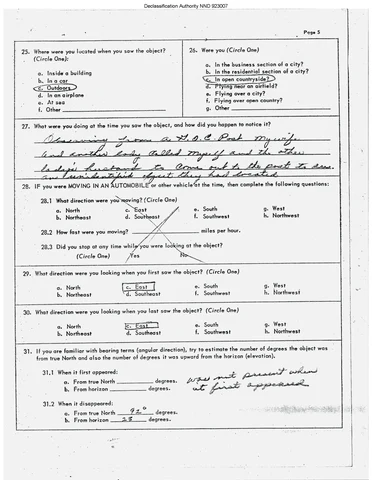 Declassification Authority NND 923007
Page 5
25. Where were you located when you saw the object?
(Circle One):
a. Inside a building
b. In a car
c. Outdoors
d. In an airplane
e. At sea
f. Other
26. Were you (Circle One)
a. In the business section of a city?
b. In the residential section of a city?
c. In open countryside?
d. Flying near an airfield?
e. Flying over a city?
f. Flying over open country?
g. Other
27. What were you doing at the time you saw the object, and how did you happen to notice it?
Observing from a G.O.C. Post My wife
and another lady called myself and the other
lady's husband to come out to the post to see
an unidentified object they had located
28. IF you were MOVING IN AN AUTOMOBILE or other vehicle at the time, then complete the following questions:
28.1 What direction were you moving? (Circle One)
a. North c. East e. South g. West
b. Northeast d. Southeast f. Southwest h. Northwest
28.2 How fast were you moving? miles per hour.
28.3 Did you stop at any time while you were looking at the object?
(Circle One) Yes No
29. What direction were you looking when you first saw the object? (Circle One)
a. North c. East e. South g. West
b. Northeast d. Southeast f. Southwest h. Northwest
30. What direction were you looking when you last saw the object? (Circle One)
a. North c. East e. South g. West
b. Northeast d. Southeast f. Southwest h. Northwest
31. If you are familiar with bearing terms (angular direction), try to estimate the number of degrees the object was
from true North and also the number of degrees it was upward from the horizon (elevation).
31.1 When it first appeared:
a. From true North degrees. was not present when
b. From horizon degrees. it first appeared
31.2 When it disappeared:
a. From true North 92° degrees.
b. From horizon 23 degrees.